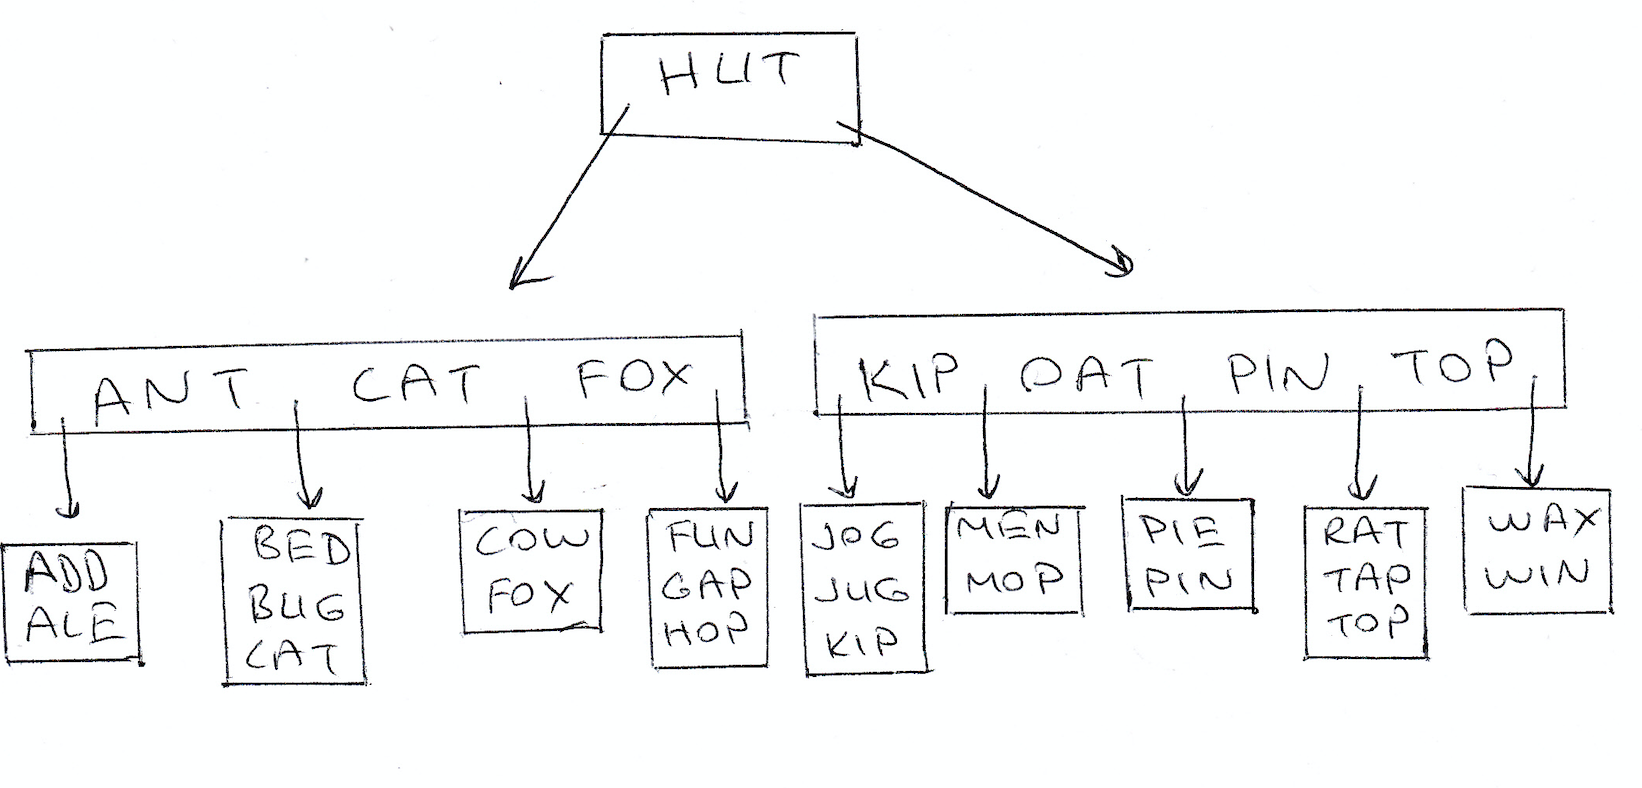 HUT
ANT CAT FOX
KIP OAT PIN TOP
ADD
ALE
BED
BUG
CAT
COW
FOX
FUN
GAP
HOP
JOG
JUG
KIP
MEN
MOP
PIE
PIN
RAT
TAP
TOP
WAX
WIN